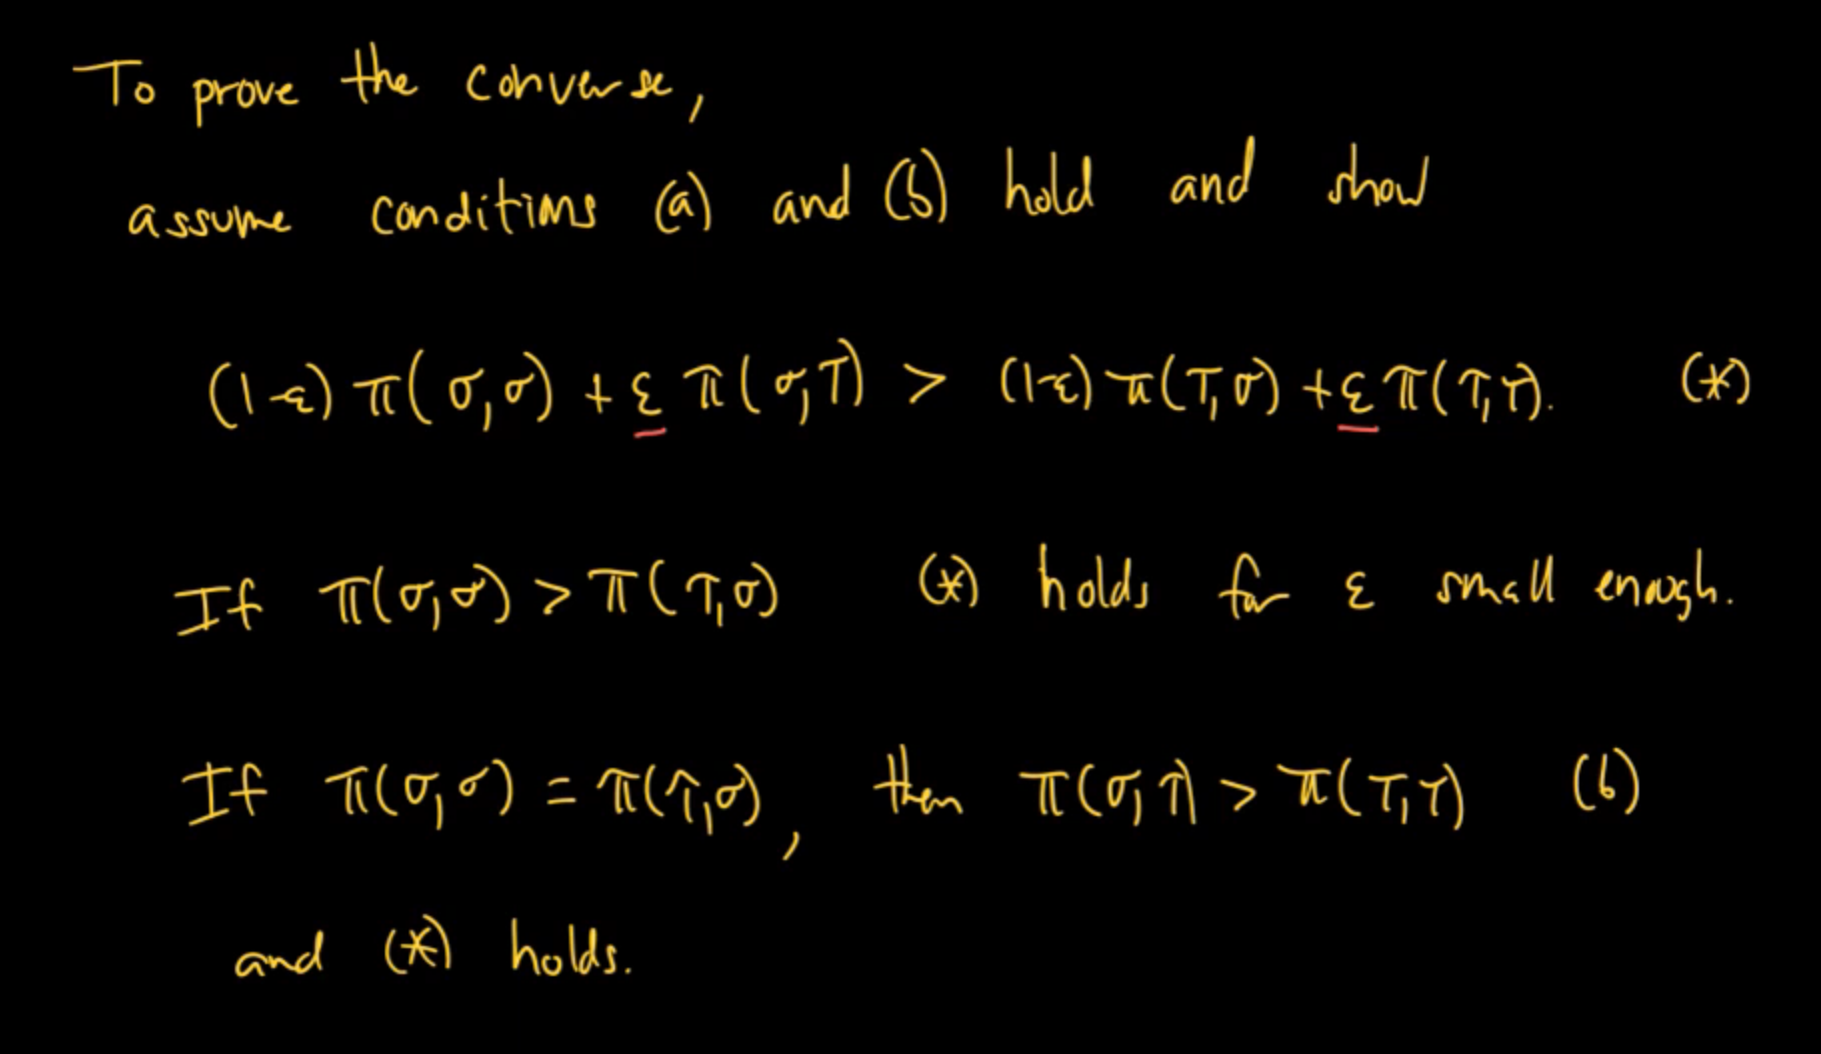 To prove the converse,
assume conditions (a) and (b) hold and show
(1-ε) π(σ,σ) + ε π(σ,τ) > (1-ε) π(τ,σ) + ε π(τ,τ). (*)
If π(σ,σ) > π(τ,σ) (*) holds for ε small enough.
If π(σ,σ) = π(τ,σ), then π(σ,τ) > π(τ,τ) (b)
and (*) holds.